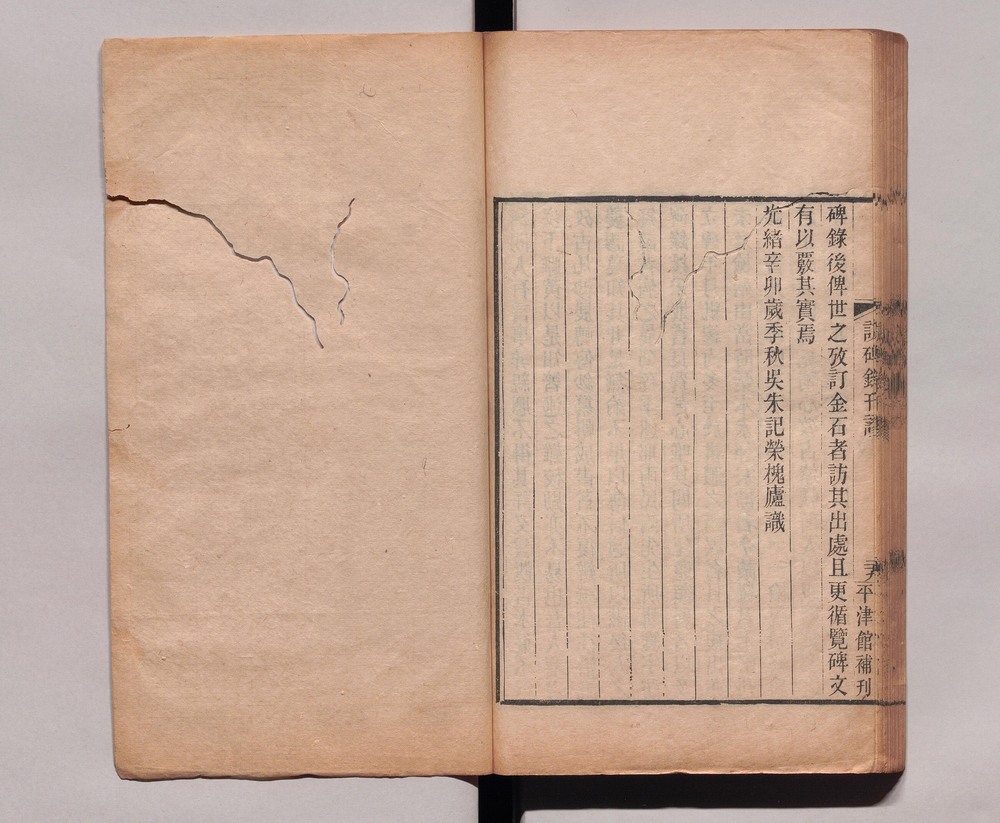 碑錄後俾世之攷訂金石者訪其出處且更循覽碑文
有以覈其實焉
光緒辛卯歲季秋吳朱記榮槐廬識
訪碑錄刊謬
平津館補刊